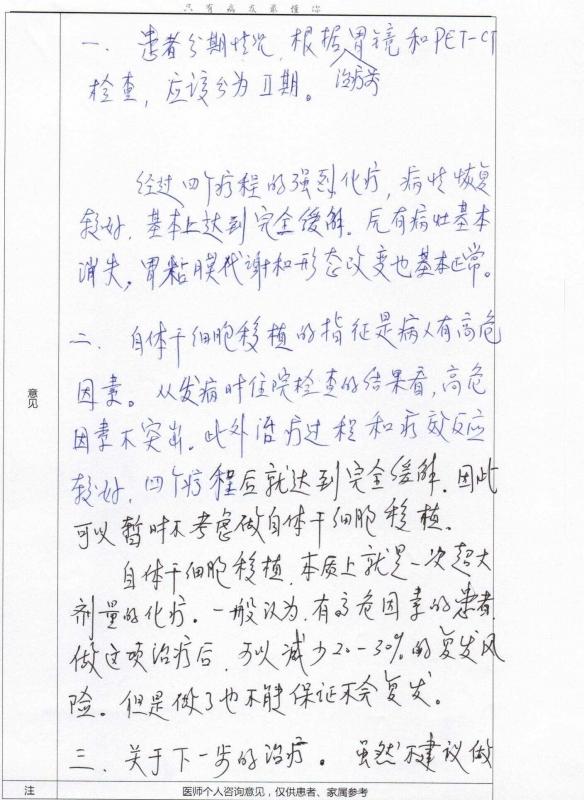 只有病友最懂你
一、患者分期情况，根据胃镜和PET-CT
治疗前
检查，应该分为II期。
经过四个疗程的强烈化疗，病情恢复
较好，基本上达到完全缓解。原有病灶基本
消失，胃粘膜代谢和形态改变也基本正常。
二、自体干细胞移植的指征是病人有高危
因素。从发病时住院检查的结果看，高危
因素不突出。此外治疗过程和疗效反应
较好，四个疗程后就达到完全缓解。因此
可以暂时不考虑做自体干细胞移植。
自体干细胞移植，本质上就是一次超大
剂量的化疗。一般认为，有高危因素的患者，
做这项治疗后，可以减少20-30%的复发风
险。但是做了也不能保证不会复发。
三、关于下一步的治疗。虽然不建议做
意见
注
医师个人咨询意见，仅供患者、家属参考